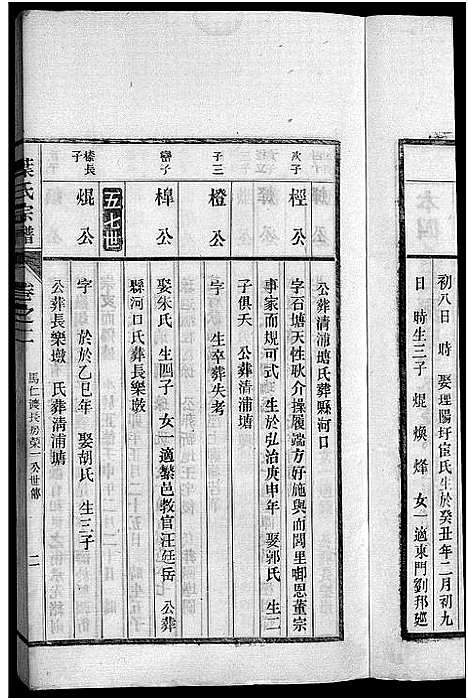 初八日　時　娶理陽圩宦氏生於癸丑年二月初九
日　時生三子　焜　煥　烽　女一適東門劉邦廵
公葬清浦塘氏葬縣河口
次子
桱公
字石塘天性耿介操履端方好施與而閭里啣恩董宗
事家而規可式　生於弘治庚申年　娶郭氏　生二
子俱夭　公葬清浦塘
子三
橙公
字　生卒葬失考
巒子
椑公
娶朱氏　生四子　女一適縏邑教官汪廷岳　公葬
縣河口氏葬長樂墩
五七世
榛長子
焜公
字　於於乙巳年　娶胡氏　生三子
公葬長樂墩　氏葬清浦塘
葉氏宗譜
卷之二
馬仁澳長房榮一公世傳
二